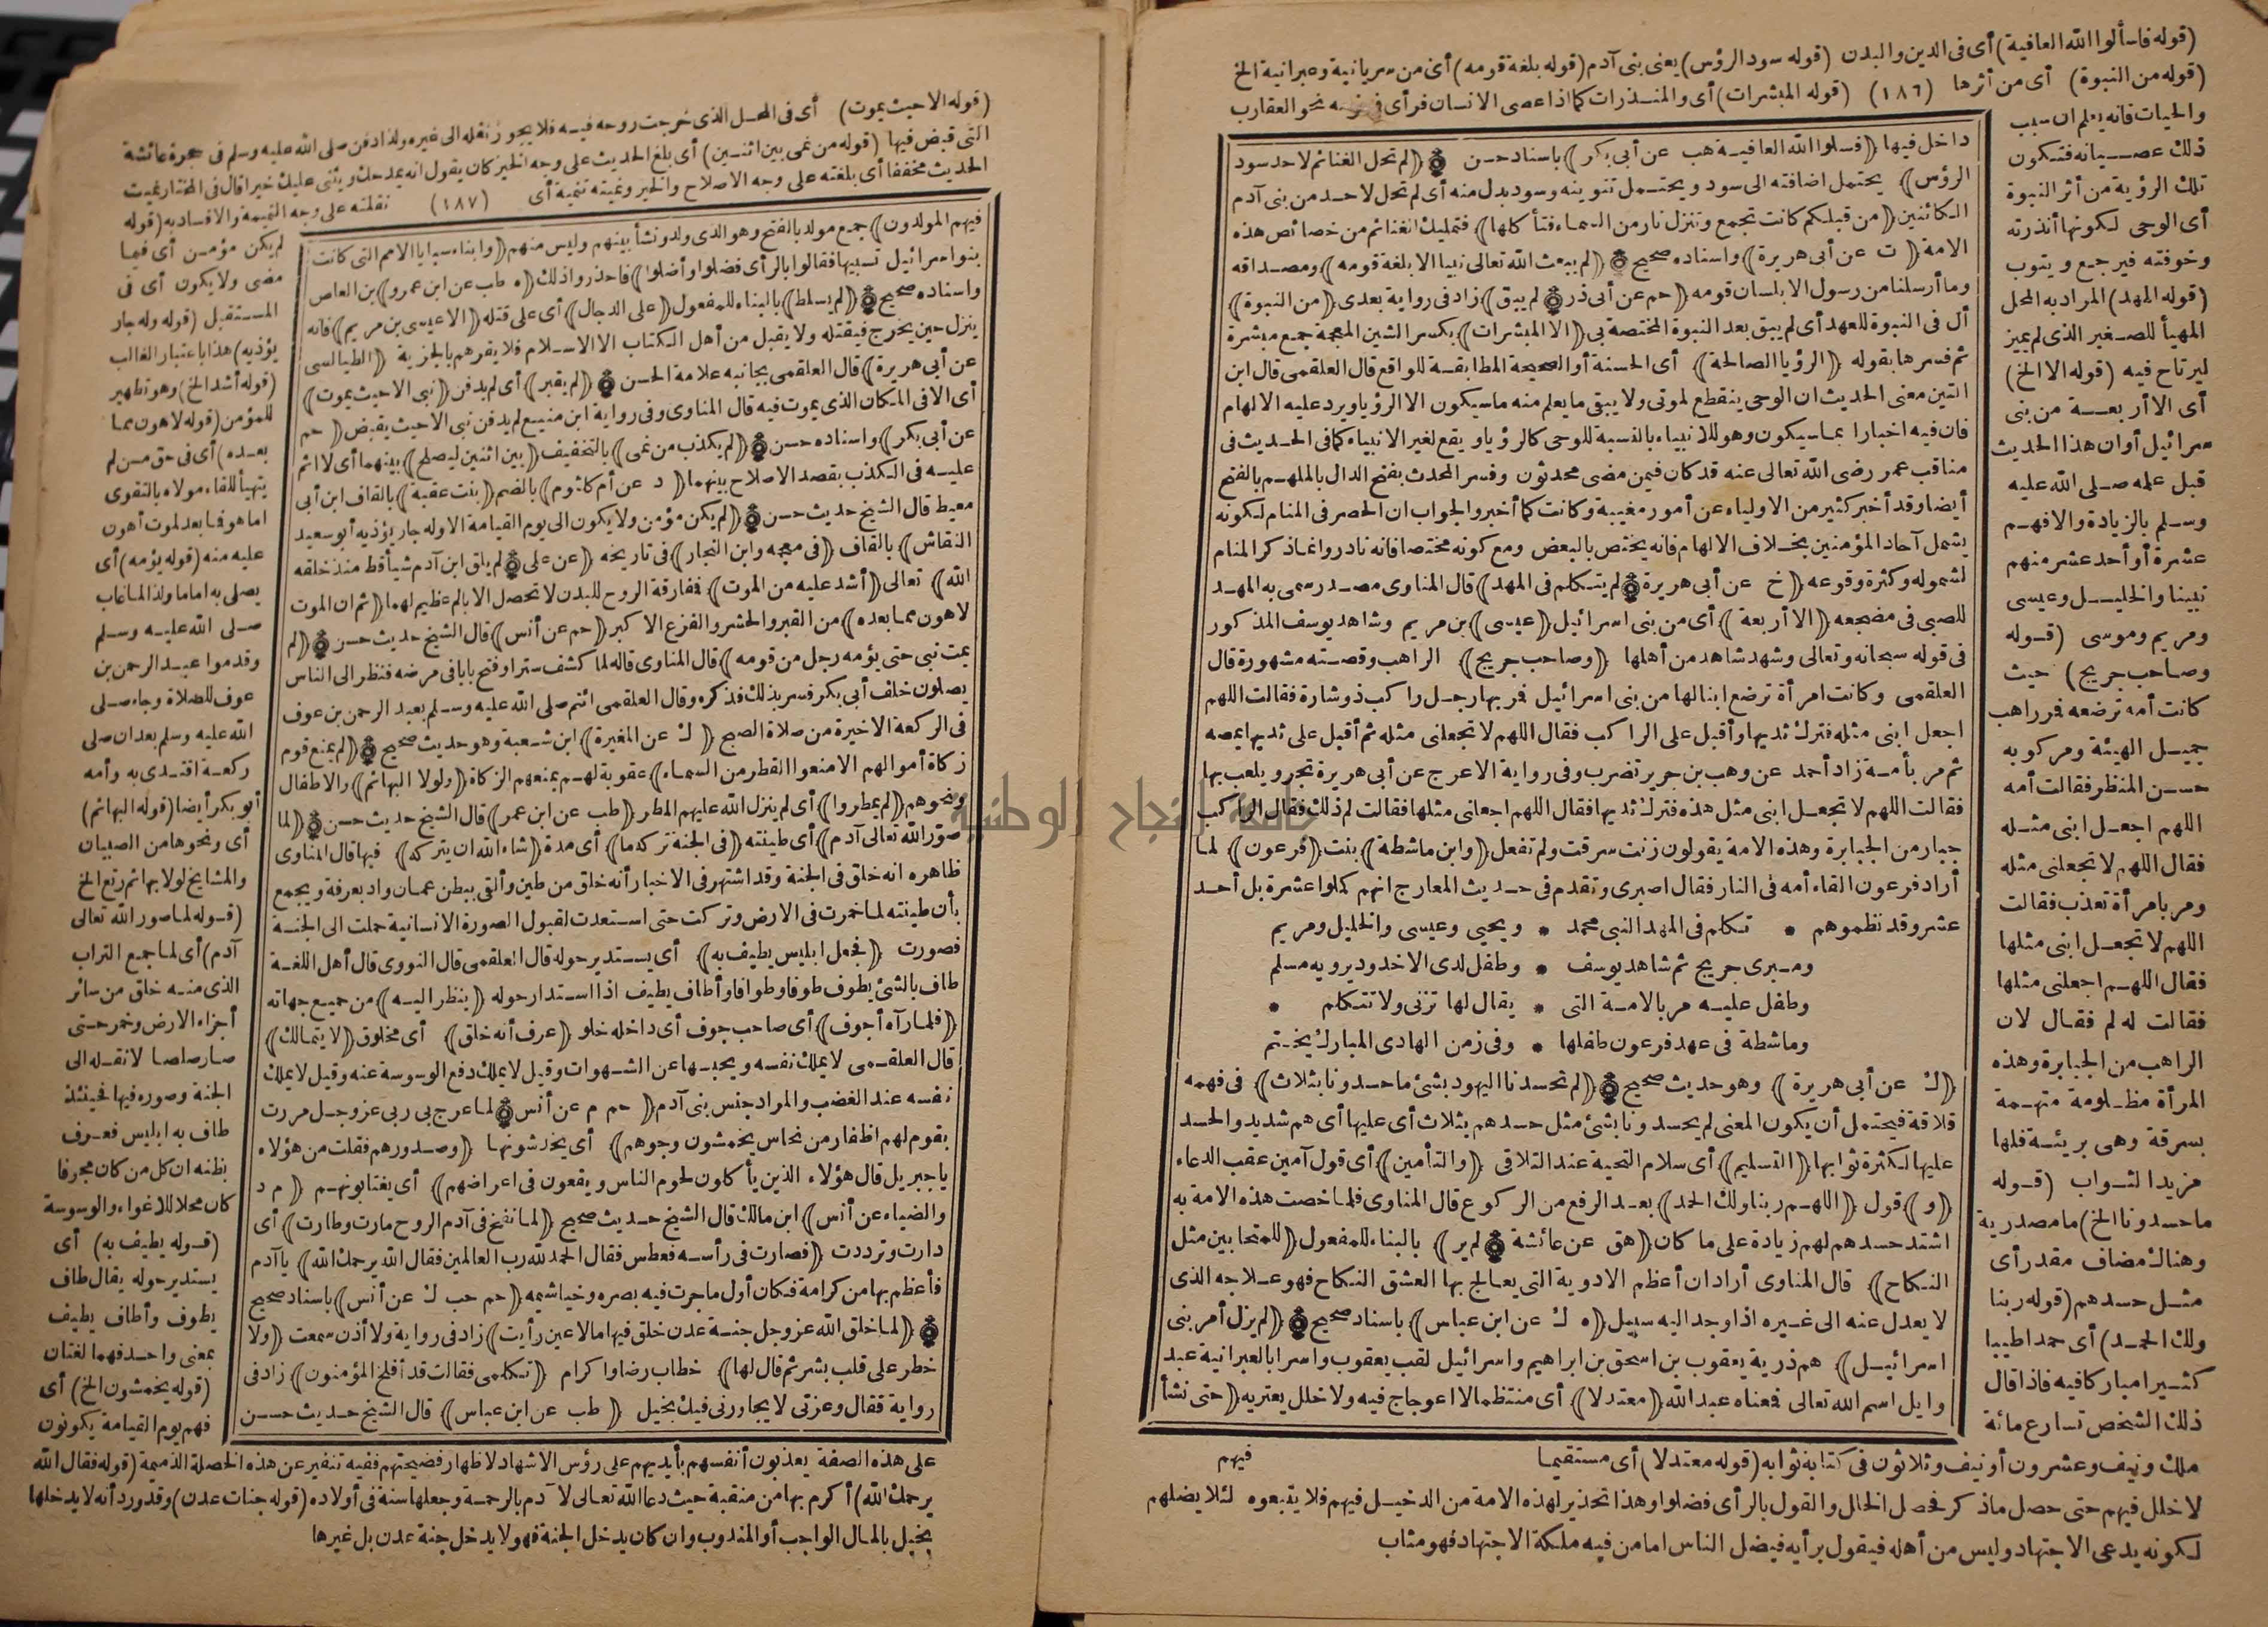 (قوله فاسألوا الله العافية) أى فى الدين والبدن (قوله سود الرؤس) يعنى بنى آدم (قوله بلغة قومه) أى من سريانية وعبرانية الخ
(قوله من النبوة) أى من أثرها (١٨٦) (قوله المبشرات) أى والمنذرات كما اذا عصى الانسان فرأى فى نومه نحو العقارب
والحيات فانه يعلم ان سبب
ذلك عصيانه فتكون
تلك الرؤية من أثر النبوة
أى الوحى لكونها أنذرته
وخوفته فيرجع ويتوب
(قوله المهد) المراد به المحل
المهيأ للصغير الذى لم يميز
ليرتاح فيه (قوله الا الخ)
أى الا أربعة من بنى
سرائيل أو ان هذا الحديث
قبل علمه صلى الله عليه
وسلم بالزيادة والا فهم
عشرة أو أحد عشر منهم
نبينا والخليل وعيسى
ومريم وموسى (قوله
وصاحب جريج) حيث
كانت أمه ترضعه فمر راهب
جميل الهيئة ومركوبه
حسن المنظر فقالت أمه
اللهم اجعل ابنى مثله
فقال اللهم لا تجعلنى مثله
ومر بامرأة تعذب فقالت
اللهم لا تجعل ابنى مثلها
فقال اللهم اجعلنى مثلها
فقالت له لم فقال لان
الراهب من الجبابرة وهذه
المرأة مظلومة متهمة
بسرقة وهى بريئة فلها
مزيد الثواب (قوله
ما حسدونا الخ) ما مصدرية
وهناك مضاف مقدر أى
مثل حسدهم (قوله ربنا
ولك الحمد) أى حمدا طيبا
كثيرا مباركا فيه فاذا قال
ذلك الشخص تسارع مائة
داخل فيها (فسلوا الله العافية هب عن أبى بكر) باسناد حسن (لم تحل الغنائم لاحد سود
الرؤس) يحتمل اضافته الى سود ويحتمل تنوينه وسود بدل منه أى لم تحل لاحد من بنى آدم
الكائنين (من قبلكم كانت تجمع وتنزل نار من السماء فتأكلها) فتمليك الغنائم من خصائص هذه
الامة (ت عن أبى هريرة) واسناده صحيح (لم يبعث الله تعالى نبيا الا بلغة قومه) ومصداقه
وما أرسلنا من رسول الا بلسان قومه (حم عن أبى ذر لم يبق) زاد فى رواية بعدى (من النبوة)
أل فى النبوة للعهد أى لم يبق بعد النبوة المختصة بى (الا المبشرات) بكسر الشين المعجمة جمع مبشرة
ثم فسرها بقوله (الرؤيا الصالحة) أى الحسنة أو الصحيحة المطابقة للواقع قال العلقمى قال ابن
التين معنى الحديث ان الوحى ينقطع لموتى ولا يبقى ما يعلم منه ما سيكون الا الرؤيا ويرد عليه الالهام
فان فيه اخبارا بما سيكون وهو للانبياء بالنسبة للوحى كالرؤيا ويقع لغير الانبياء كما فى الحديث فى
مناقب عمر رضى الله تعالى عنه قد كان فيمن مضى محدثون وفسر المحدث بفتح الدال بالملهم بالفتح
أيضا وقد أخبر كثير من الاولياء عن أمور مغيبة وكانت كما أخبروا والجواب ان الحصر فى المنام لكونه
يشمل آحاد المؤمنين بخلاف الالهام فانه يختص بالبعض ومع كونه مختصا فانه نادر وانما ذكر المنام
لشموله وكثرة وقوعه (خ عن أبى هريرة لم يتكلم فى المهد) قال المناوى مصدر سمى به المهد
للصبى فى مضجعه (الا أربعة) أى من بنى اسرائيل (عيسى) بن مريم وشاهد يوسف المذكور
فى قوله سبحانه وتعالى وشهد شاهد من أهلها (وصاحب جريج) الراهب وقصته مشهورة قال
العلقمى وكانت امرأة ترضع ابنا لها من بنى اسرائيل فمر بها رجل راكب ذو شارة فقالت اللهم
اجعل ابنى مثله فترك ثديها وأقبل على الراكب فقال اللهم لا تجعلنى مثله ثم أقبل على ثديها يمصه
ثم مر بأمة زاد أحمد عن وهب بن جرير تضرب وفى رواية الاعرج عن أبى هريرة تجرر ويلعب بها
فقالت اللهم لا تجعل ابنى مثل هذه فترك ثديها فقال اللهم اجعلنى مثلها فقالت لم ذلك فقال الراكب
جبار من الجبابرة وهذه الامة يقولون زنت سرقت ولم تفعل (وابن ماشطة) بنت (فرعون) لما
أراد فرعون القاء أمه فى النار فقال اصبرى وتقدم فى حديث المعارج انهم كملوا عشرة بل أحد
عشر وقد نظموهم * تكلم فى المهد النبى محمد * ويحيى وعيسى والخليل ومريم
ومبرى جريج ثم شاهد يوسف * وطفل لدى الاخدود يرويه مسلم
وطفل عليه مر بالامة التى * يقال لها تزنى ولا تتكلم *
وماشطة فى عهد فرعون طفلها * وفى زمن الهادى المبارك يختم
(ك عن أبى هريرة) وهو حديث صحيح (لم تحسدنا اليهود بشئ ما حسدونا بثلاث) فى فهمه
قلاقة فيحتمل أن يكون المعنى لم يحسدونا بشئ مثل حسدهم بثلاث أى عليها أى هم شديد والحسد
عليها لكثرة ثوابها (التسليم) أى سلام التحية عند التلاقى (والتأمين) أى قول آمين عقب الدعاء
(و) قول (اللهم ربنا ولك الحمد) بعد الرفع من الركوع قال المناوى فلما خصت هذه الامة به
اشتد حسدهم لهم زيادة على ما كان (هق عن عائشة لم ير) بالبناء للمفعول (للمتحابين مثل
النكاح) قال المناوى أراد ان أعظم الادوية التى يعالج بها العشق النكاح فهو علاجه الذى
لا يعدل عنه الى غيره اذا وجد اليه سبيل (ه ك عن ابن عباس) باسناد صحيح (لم يزل أمر بنى
اسرائيل) هم ذرية يعقوب بن اسحق بن ابراهيم واسرائيل لقب يعقوب واسرا بالعبرانية عبد
وايل اسم الله تعالى فمعناه عبد الله (معتدلا) أى منتظما لا اعوجاج فيه ولا خلل يعتريه (حتى نشأ
فيهم
ملك ونيف وعشرون أو نيف وثلاثون فى كتابة ثوابه (قوله معتدلا) أى مستقيما
لا خلل فيهم حتى حصل ما ذكر فحصل الخلل والقول بالرأى فضلوا وهذا تحذير لهذه الامة من الدخيل فيهم فلا يتبعوه لئلا يضلهم
لكونه يدعى الاجتهاد وليس من أهله فيقول برأيه فيضل الناس اما من فيه ملكة الاجتهاد فهو مثاب
(قوله الا حيث يموت) أى فى المحل الذى خرجت روحه فيه فلا يجوز نقله الى غيره ولذا دفن صلى الله عليه وسلم فى حجرة عائشة
التى قبض فيها (قوله من نمى بين اثنين) أى بلغ الحديث على وجه الخير كان يقول انه يمدحك ويثنى عليك خيرا قال فى المختار نميت
الحديث مخففا أى بلغته على وجه الاصلاح والخير ونميته تنمية أى (١٨٧) نقلته على وجه النميمة والافساد به (قوله
لم يكن مؤمن أى فيما
مضى ولا يكون أى فى
المستقبل (قوله وله جار
يؤذيه) هذا باعتبار الغالب
(قوله أشد الخ) وهو تطهير
للمؤمن (قوله لاهون مما
بعده) أى فى حق من لم
يتهيأ للقاء مولاه بالتقوى
اما هو فما بعد الموت أهون
عليه منه (قوله يؤمه) أى
يصلى به اماما ولذا لما غاب
صلى الله عليه وسلم
وقدموا عبد الرحمن بن
عوف للصلاة وجاء صلى
الله عليه وسلم بعد ان صلى
ركعة اقتدى به وأمه
أبو بكر أيضا (قوله البهائم)
أى ونحوها من الصبيان
والمشايخ لولا بهائم رتع الخ
(قوله لما صور الله تعالى
آدم) أى لما جمع التراب
الذى منه خلق من سائر
أجزاء الارض وخمر حتى
صار صلصا لا نقله الى
الجنة وصوره فيها فحينئذ
طاف به ابليس فعرف
بظنه ان كل من كان مجوفا
كان محلا للاغواء والوسوسة
(قوله يطيف به) أى
يستدير حوله يقال طاف
يطوف وأطاف يطيف
بمعنى واحد فهما لغتان
(قوله يخمشون الخ) أى
فهم يوم القيامة يكونون
فيهم المولدون) جمع مولد بالفتح وهو الذى ولد ونشأ بينهم وليس منهم (وابناء سبايا الامم التى كانت
بنو اسرائيل تسبيها فقالوا بالرأى فضلوا وأضلوا) فاحذروا ذلك (ه طب عن ابن عمرو) بن العاص
واسناده صحيح (لم يسلط) بالبناء للمفعول (على الدجال) أى على قتله (الا عيسى بن مريم) فانه
ينزل حين يخرج فيقتله ولا يقبل من أهل الكتاب الا الاسلام فلا يقرهم بالجزية (الطيالسى
عن أبى هريرة) قال العلقمى بجانبه علامة الحسن (لم يقبر) أى لم يدفن (نبى الا حيث يموت)
أى الا فى المكان الذى يموت فيه قال المناوى وفى رواية ابن منيع لم يدفن نبى الا حيث يقبض (حم
عن أبى بكر) واسناده حسن (لم يكذب من نمى) بالتخفيف (بين اثنين ليصلح) بينهما أى لا اثم
عليه فى الكذب بقصد الاصلاح بينهما (د عن أم كلثوم) بالضم (بنت عقبة) بالقاف ابن أبى
معيط قال الشيخ حديث حسن (لم يكن مؤمن ولا يكون الى يوم القيامة الا وله جار يؤذيه أبو سعيد
النقاش) بالقاف (فى معجمه وابن النجار) فى تاريخه (عن على لم يلق ابن آدم شيأ قط منذ خلقه
الله) تعالى (أشد عليه من الموت) ففارقة الروح للبدن لا تحصل الا بألم عظيم لهما (ثم ان الموت
لاهون مما بعده) من القبر والحشر والفزع الاكبر (حم عن أنس) قال الشيخ حديث حسن (لم
يمت نبى حتى يؤمه رجل من قومه) قال المناوى قاله لما كشف سترا وفتح بابا فى مرضه فنظر الى الناس
يصلون خلف أبى بكر فسر بذلك فذكره وقال العلقمى ائتم صلى الله عليه وسلم بعبد الرحمن بن عوف
فى الركعة الاخيرة من صلاة الصبح (ك عن المغيرة) ابن شعبة وهو حديث صحيح (لم يمنع قوم
زكاة أموالهم الا منعوا القطر من السماء) عقوبة لهم بمنعهم الزكاة (ولولا البهائم) والاطفال
ونحوهم (لم يمطروا) أى لم ينزل الله عليهم المطر (طب عن ابن عمر) قال الشيخ حديث حسن (لما
صور الله تعالى آدم) أى طينته (فى الجنة تركه ما) أى مدة (شاء الله ان يتركه) فيها قال المناوى
ظاهره انه خلق فى الجنة وقد اشتهر فى الاخبار أنه خلق من طين وألقى ببطن عمان واد بعرفة ويجمع
بأن طينته لما خمرت فى الارض وتركت حتى استعدت لقبول الصورة الانسانية حملت الى الجنة
فصورت (فجعل ابليس يطيف به) أى يستدير حوله قال العلقمى قال النووى قال أهل اللغة
طاف بالشئ يطوف طوفا وطوافا وأطاف يطيف اذا استدار حوله (ينظر اليه) من جميع جهاته
(فلما رآه أجوف) أى صاحب جوف أى داخله خلو (عرف أنه خلق) أى مخلوق (لا يتمالك)
قال العلقمى لا يملك نفسه ويحبسها عن الشهوات وقيل لا يملك دفع الوسوسة عنه وقيل لا يملك
نفسه عند الغضب والمراد جنس بنى آدم (حم م عن أنس لما عرج بى ربى عز وجل مررت
بقوم لهم اظفار من نحاس يخمشون وجوههم) أى يخدشونها (وصدورهم فقلت من هؤلاء
يا جبريل قال هؤلاء الذين يأكلون لحوم الناس ويقعون فى اعراضهم) أى يغتابونهم (م د
والضياء عن أنس) ابن مالك قال الشيخ حديث صحيح (لما نفخ فى آدم الروح مارت وطارت) أى
دارت وترددت (فصارت فى رأسه فعطس فقال الحمد لله رب العالمين فقال الله يرحمك الله) يا آدم
فأعظم بها من كرامة فكان أول ما جرت فيه بصره وخياشيمه (حم حب ك عن أنس) باسناد صحيح
(لما خلق الله عز وجل جنة عدن خلق فيها ما لا عين رأيت) زاد فى رواية ولا أذن سمعت (ولا
خطر على قلب بشر ثم قال لها) خطاب رضا واكرام (تكلمى فقالت قد أفلح المؤمنون) زاد فى
رواية فقال وعزتى لا يجاورنى فيك بخيل (طب عن ابن عباس) قال الشيخ حديث حسن
على هذه الصفة يعذبون أنفسهم بأيديهم على رؤس الاشهاد لاظهار فضيحتهم ففيه تنفير عن هذه الخصلة الذميمة (قوله فقال الله
يرحمك الله) أكرم بها من منقبة حيث دعا الله تعالى لآدم بالرحمة وجعلها سنة فى أولاده (قوله جنات عدن) وقد ورد أنه لا يدخلها
بخيل بالمال الواجب أو المندوب وان كان يدخل الجنة فهو لا يدخل جنة عدن بل غيرها
جامعة النجاح الوطنية